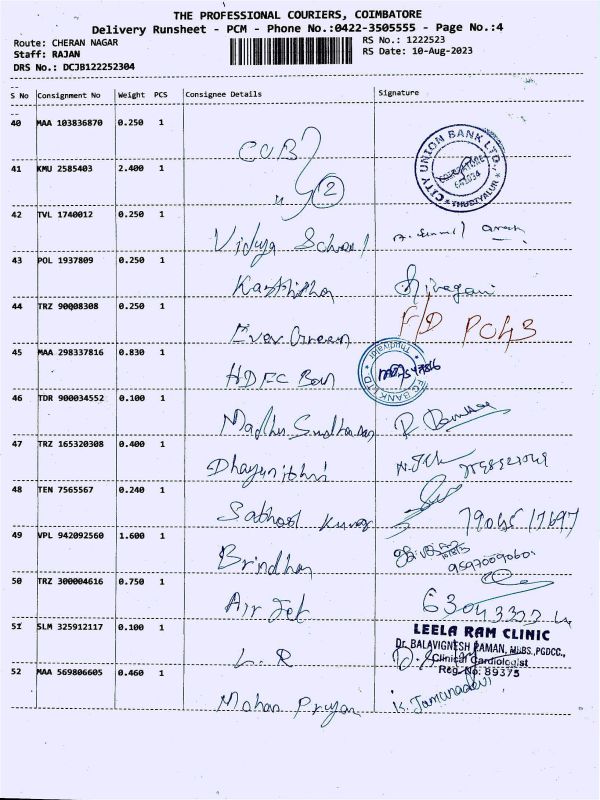 THE PROFESSIONAL COURIERS, COIMBATORE
Delivery Runsheet - PCM - Phone No.:0422-3505555 - Page No.:4
Route: CHERAN NAGAR
RS No.: 1222523
Staff: RAJAN
RS Date: 10-Aug-2023
DRS No.: DCJB122252304
S No Consignment No Weight PCS Consignee Details Signature
40 MAA 103836870 0.250 1
CUB
CITY UNION BANK LTD.,
COIMBATORE
641034
THUDIYALUR
41 KMU 2585403 2.400 1
2
42 TVL 1740012 0.250 1
Vidya School
43 POL 1937809 0.250 1
Karthika
44 TRZ 90008308 0.250 1
Ever Green
F/D
45 MAA 298337816 0.830 1
HDFC Ban
BANK LTD
Thudiyalur
46 TDR 900034552 0.100 1
Madhu Sudhanan
47 TRZ 165320308 0.400 1
48 TEN 7565567 0.240 1
Kumar
49 VPL 942092560 1.600 1
Brindha
50 TRZ 300004616 0.750 1
Air Jet
51 SLM 325912117 0.100 1
L.R
LEELA RAM CLINIC
Dr. BALAVIGNESH RAMAN, MBBS.,PGDCC.,
Clinical Cardiologist
Reg. No: 89375
52 MAA 569806605 0.460 1
Mohan Priyan
K. Jamunadevi